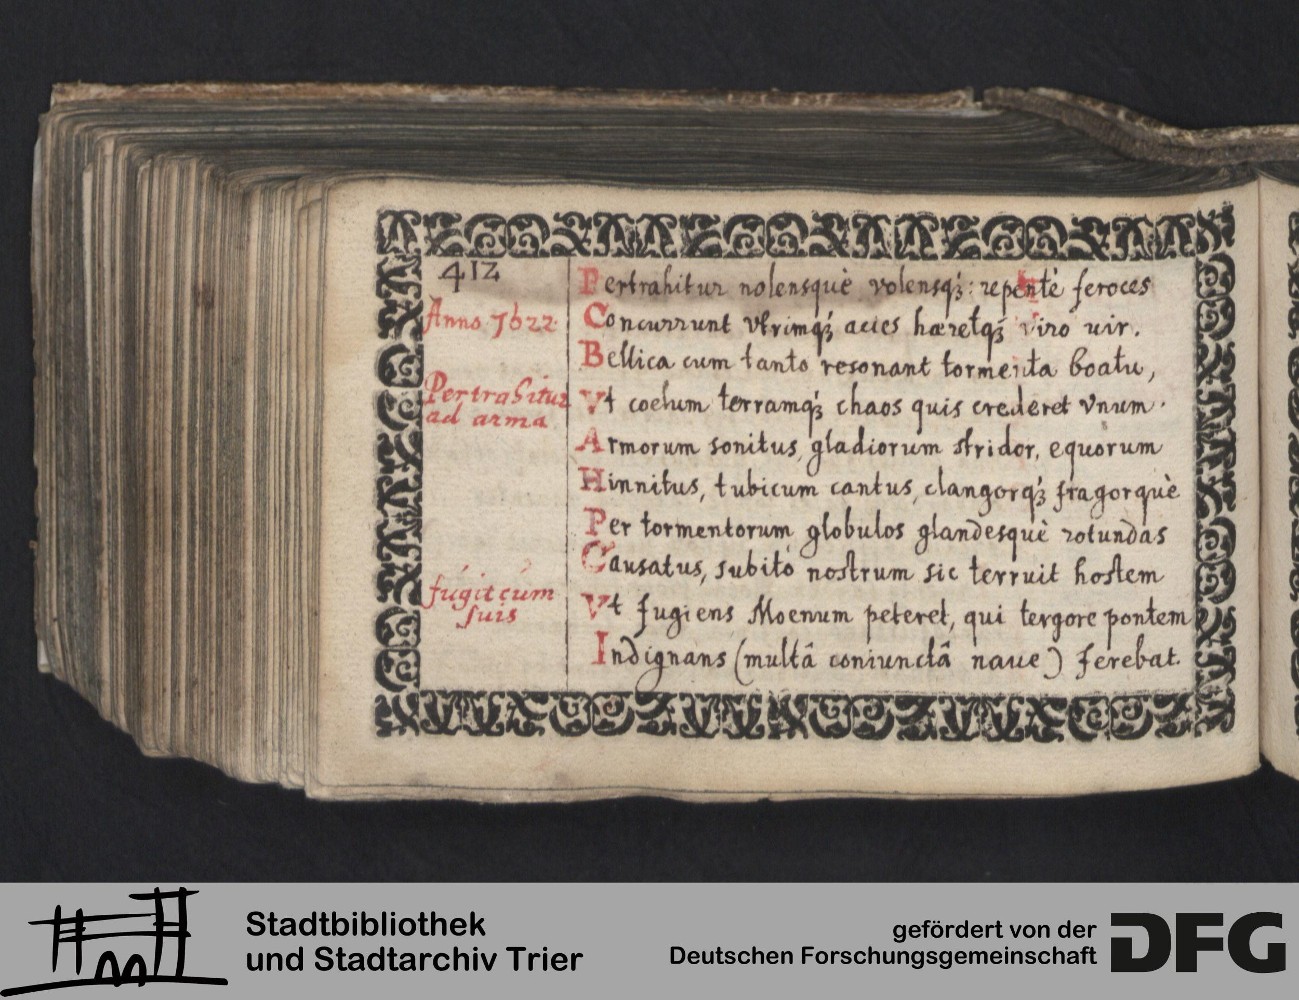 412
Anno 1622
Pertrahitur
ad arma
fúgit cúm
suis
Pertrahitur nolensquè volensq́; : repentè feroces
Concurrunt vtrimq́; acies hæretq́; viro uir.
Bellica cum tanto resonant tormenta boatu,
Vt coelum terramq́; chaos quis crederet vnum.
Armorum sonitus, gladiorum stridor, equorum
Hinnitus, tubicum cantus, clangorq́; fragorquè
Per tormentorum globulos glandesquè rotundas
Causatus, subitò nostrum sic terruit hostem
Vt fugiens Moenum peteret, qui tergore pontem
Indignans (multâ coniunctâ naue) ferebat.
Stadtbibliothek
und Stadtarchiv Trier
gefördert von der
Deutschen Forschungsgemeinschaft
DFG